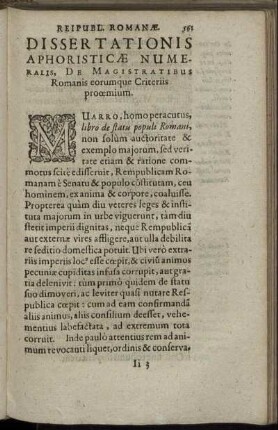 REIPUBL. ROMANÆ. 561
DISSERTATIONIS
APHORISTICÆ NUME-
RALIS, DE MAGISTRATIBUS
Romanis eorumque Criteriis
proœmium.
VUARRO, homo peracutus,
libro de statu populi Romani,
non solùm auctoritate &
exemplo majorum, sed veri
tate etiam & ratione com
motus scitè disseruit, Rempublicam Ro
manam è Senatu & populo cõstitutam, ceu
hominem, ex anima & corpore, coaluisse.
Propterea quàm diu veteres leges & insti
tuta majorum in urbe viguerunt, tàm diu
stetit imperii dignitas, neque Rempublicã
aut externæ vires affligere, aut ulla debilita
re seditio domestica potuit. Ubi verò extra
riis imperiis locꝰ esse cœpit, & civiũ animos
pecuniæ cupiditas infusa corrupit, aut gra
tia delenivit: tum primò quidem de statu
suo dimoveri, ac leviter quasi nutare Res-
publica cœpit: cum ad eam confirmandã
aliis animus, aliis consilium deesset, vehe-
mentius labefactata, ad extremum tota
corruit. Inde paulò attentius rem ad ani-
mum revocanti liquet, ordinis & conserva-
Ii 3